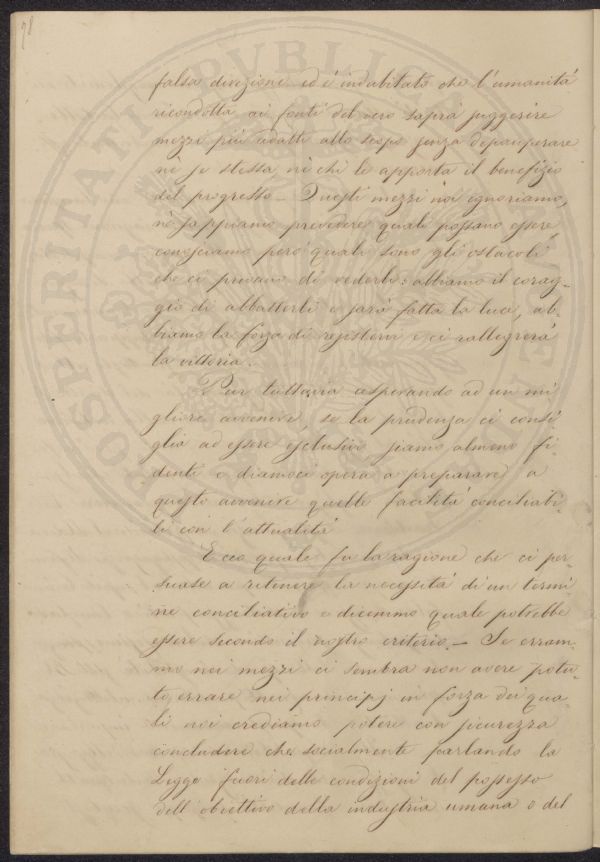 78
falsa direzione ed è indubitato che l'umanità
ricondotta ai fonti del vero saprà suggerire
mezzi più adatti allo scopo senza depauperare
nè se stessa, nè chi le apporta il benefizio
del progresso — Questi mezzi noi ignoriamo,
nè sappiamo prevedere quali possano essere
conosciamo però quali sono gli ostacoli
che ci privano di vederli: abbiamo il corag-
gio di abbatterli e sarà fatta la luce, ab-
biamo la forza di resistere e ci rallegrerà
la vittoria.
Pur tuttavia aspirando ad un mi
gliore avvenire, se la prudenza ci consi-
glia ad essere esclusivi siamo almeno fi-
denti e diamoci opera a preparare a
questo avvenire quelle facilità conciliabi-
li con l'attualità
Ecco quale fu la ragione che ci per-
suase a ritenere la necessità di un termi-
ne conciliativo e dicemmo quale potrebbe
essere secondo il nostro criterio. — Se erram-
mo nei mezzi ci sembra non avere potu-
to errare nei principj in forza dei qua-
li noi crediamo potere con sicurezza
concludere che socialmente parlando la
Legge fuori delle condizioni del possesso
dell'obiettivo della industria umana o del
POSPERITATI PVBLICAE